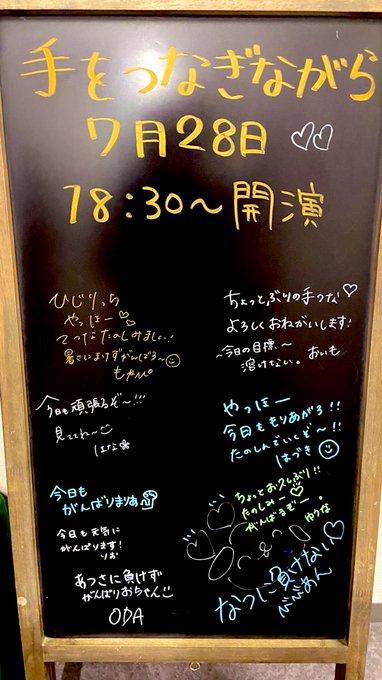 手をつなぎながら
7月28日 ♡♡
18:30〜開演
ひじりっち
やっほー♡
てつなたのしみましょー!
暑さにまけずがんばろ〜☺
もかぴ
ちょっとぶりの手つな♡
よろしくおねがいします!
〜今日の目標〜
溶けない。 おいも
今日も頑張るぞ〜!!!
見ててね〜☺
はな
やっほー
今日ももりあがろ!!
たのしんでいくぞ〜!!
はづき☺
今日も
がんばりまりあ
今日も元気に
がんばります!
りお
ちょっとお久しぶり!!
たのしみー♡
がんばるぞー。
ゆうな
あつさに負けず
がんばりおちゃん☺
ODA
なつに負けない♡
ぶぶあん